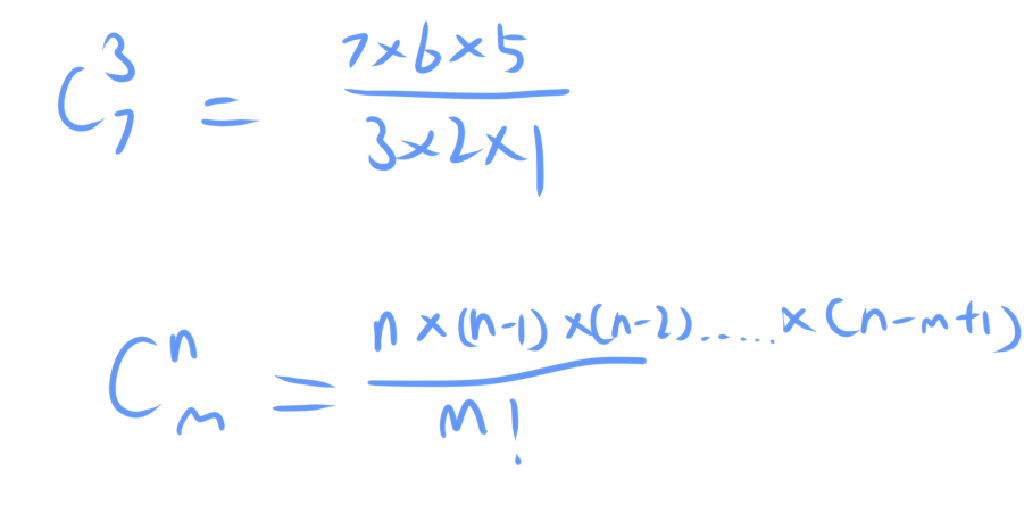 C₇³ = (7×6×5)/(3×2×1)
Cₘⁿ = (n×(n-1)×(n-2).....×(n-m+1))/m!